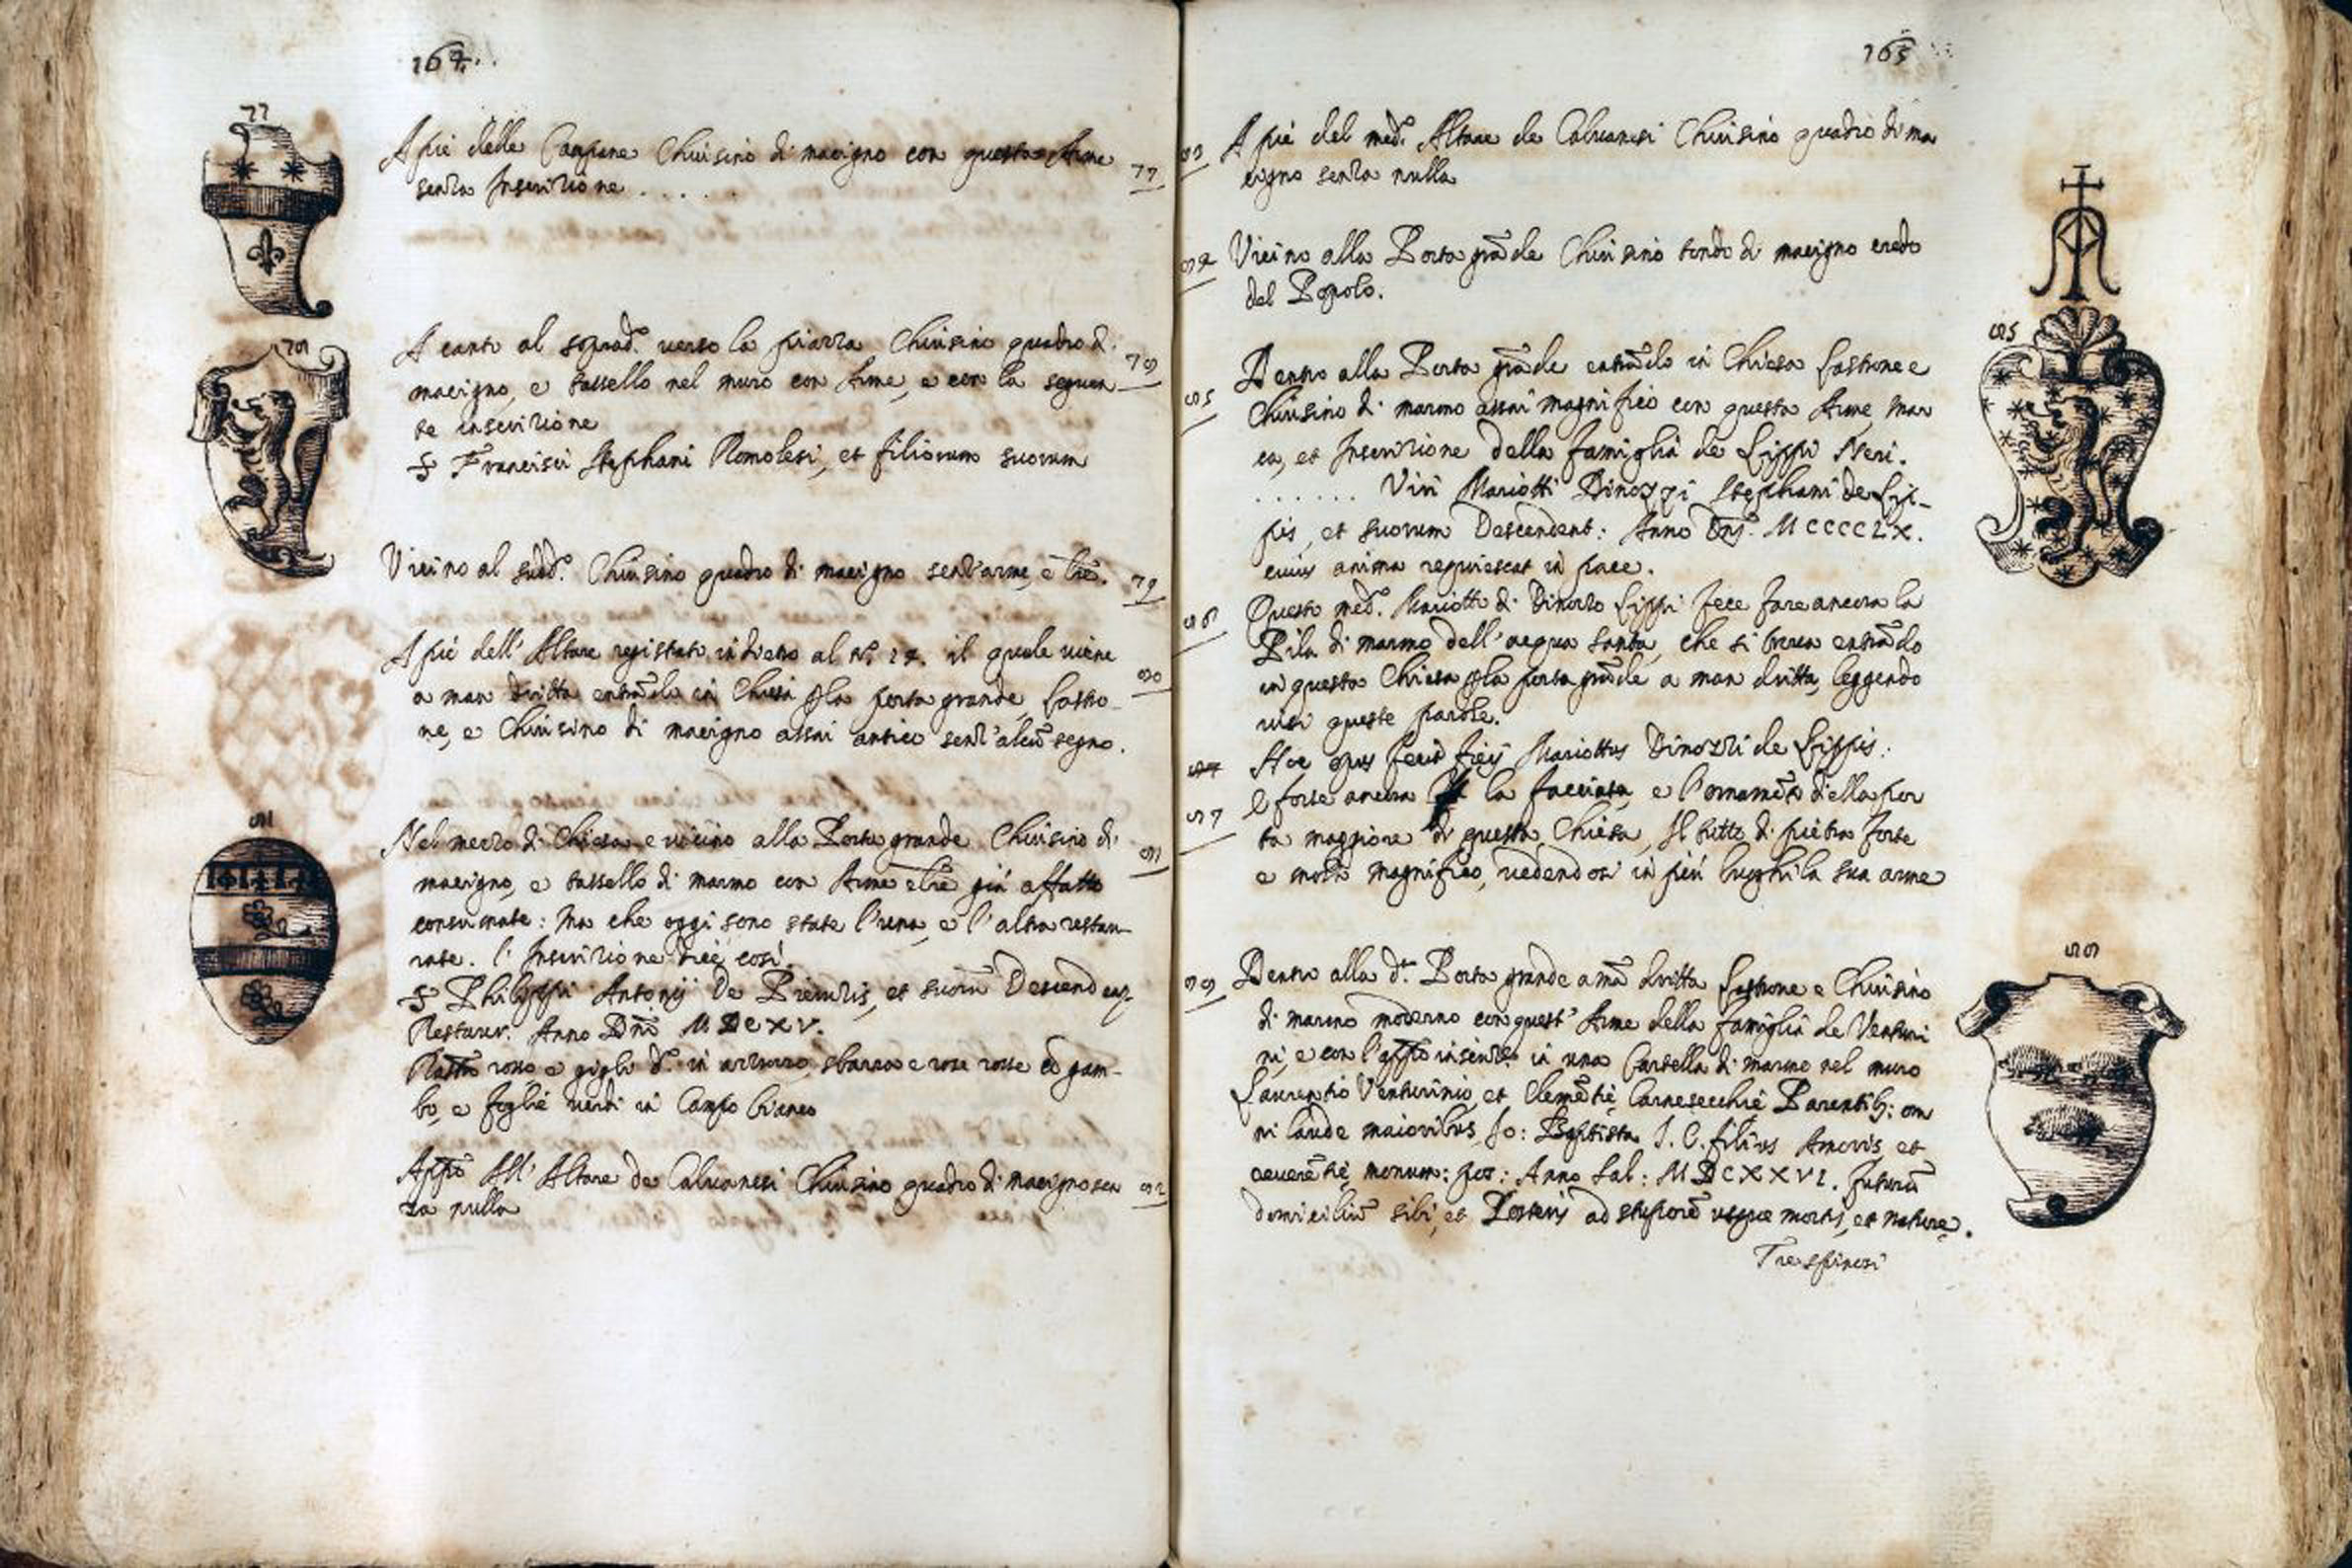 164.
77
A piè delle Campane Chiusino di macigno con questa Arme
senza Inscrizione . . . .
77
78
A canto al soprad.º verso la piazza Chiusino quadro di
macigno, e tassello nel muro con Arme, e con la seguen
te inscrizione
78
S Francisci Stephani Romolesi, et filiorum suorum
Vicino al sudd.º Chiusino quadro di macigno senz'arme, e lre.
79
A piè dell'Altare registrato indietro al Nº 27. il quale viene
a man dritta entrãdo in Chiesa p la porta grande, lastro
ne, e Chiusino di macigno assai antico senz'alcũ segno.
80
81
Nel mezzo di Chiesa e vicino alla Porta grande Chiusino di
macigno, e tassello di marmo con Arme e lre già affatto
consumate: Ma che oggi sono state l'una, e l'altra restau
rate. l'Inscrizione dice così.
81
S Philippi Antonij De Pieruzis, et suorũ Descend
Restaur. Anno Dñi MDCXV.
Rastro rosso e gigli d.º in azzurro, sbarra e rose rosse cõ gam-
bo, e foglie verdi in Campo bianco
App.º All'Altare de Calvanesi Chiusino quadro di macigno sen
za nulla
82
165
83
A piè del med.º Altare de Calvanesi Chiusino quadro di ma
cigno senza nulla
84
Vicino alla Porta grãde Chiusino tondo di macigno credo
del Popolo.
85
85
Dentro alla Porta grãde entrãdo in Chiesa lastrone e
Chiusino di marmo assai magnifico con questa Arme, Mar
ca, et Inscrizione della famiglia de Lippi Neri.
. . . . . . Viri Mariotti Dinozzi Stephani de Lip-
pis, et suorum Descendent: Anno Dñj. MCCCCLX.
cuius anima requiescat in pace.
86
Questo med.º Mariotto di Dinozzo Lippi fece fare ancora la
Pila di marmo dell'acqua santa, che si trova entrãdo
in questa Chiesa p la porta grãde a man dritta, leggendo
visi queste parole.
87
Hoc opus fecit fieij Mariottus Dinozzi de Lippis:
87
E forse ancora la facciata, e l'ornamẽto della por
ta maggiore di questa Chiesa, il tutto di pietra forte
e molto magnifico, vedendosi in più luoghi la sua arme
88
88
Dentro alla d.ª Porta grande a mã dritta lastrone e Chiusino
di marmo moderno con quest'Arme della famiglia de Venturi
ni, e con l' in una Cartella di marmo nel muro
Laurentio Venturinio, et Clemẽtie Carnesecchie Parentib: om
ni laude maioribus Jo: Baptista I. C. filius Amoris, et
reverẽtie monum: pos: Anno Sal: MDCXXVI. futurũ
domiciliũ sibi, et Posteris ad stuporẽ usque mortis, et nature.
Tre spinosi